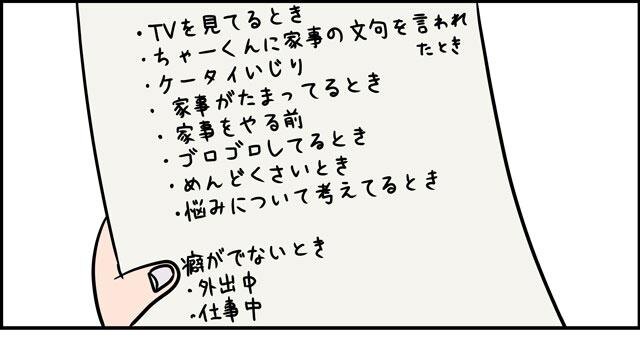 ・TVを見てるとき
・ちゃーくんに家事の文句を言われ
たとき
・ケータイいじり
・家事がたまってるとき
・家事をやる前
・ゴロゴロしてるとき
・めんどくさいとき
・悩みについて考えてるとき
癖がでないとき
・外出中
・仕事中